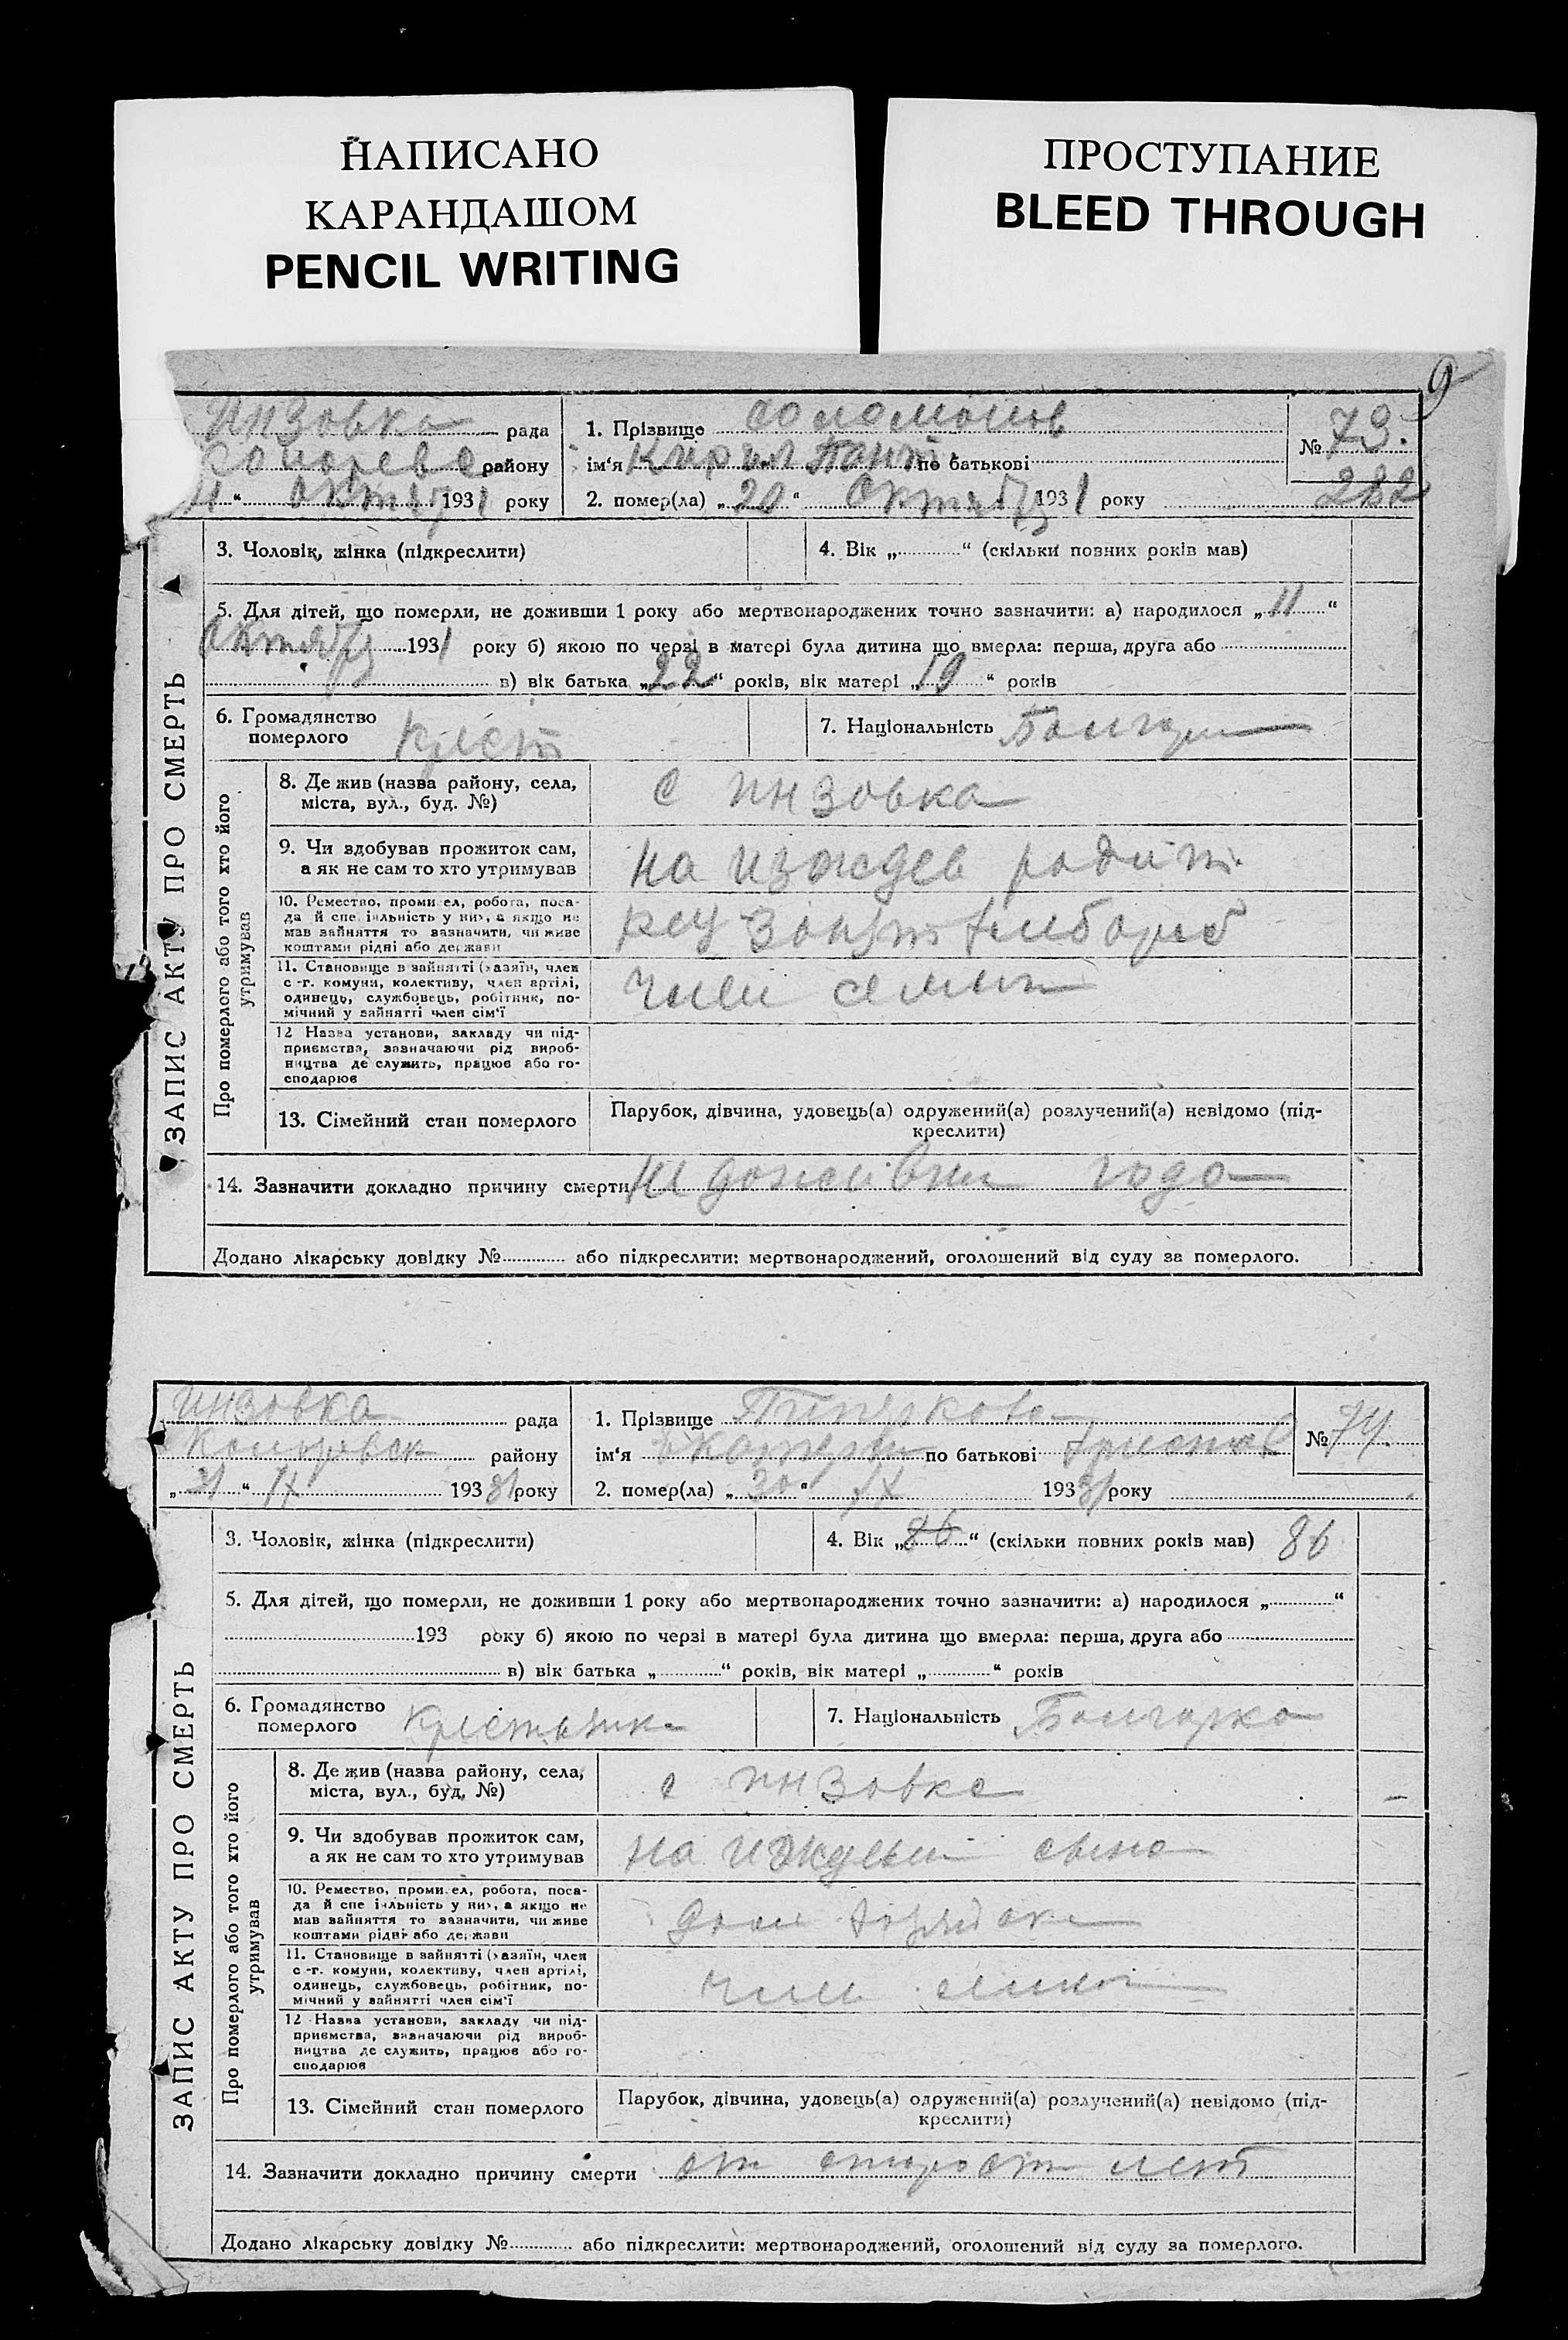 НАПИСАНО
КАРАНДАШОМ
PENCIL WRITING
ПРОСТУПАНИЕ
BLEED THROUGH
9
Инзовка рада
району
11 " октяб 1931 року
1. Прізвище Соломонов
ім'я Кирил Пант. по батькові
2. помер(ла) „ 20 " Октяб 1931 року
№ 73.
282
ЗАПИС АКТУ ПРО СМЕРТЬ
3. Чоловік, жінка (підкреслити)
4. Вік „ “ (скільки повних років мав)
5. Для дітей, що померли, не доживши 1 року або мертвонароджених точно зазначити: а) народилося „ 11 “
Октяб 1931 року б) якою по черзі в матері була дитина що вмерла: перша, друга або
в) вік батька „ 22 “ років, вік матері „ 19 “ років
6. Громадянство
померлого Крест
7. Національність Болгарин
Про померлого або того хто його
утримував
8. Де жив (назва району, села,
міста, вул., буд. №)
с Инзовка
9. Чи здобував прожиток сам,
а як не сам то хто утримував
на изождев родит
10. Ремество, промисел, робота, поса-
да й спеціяльність у них, а якщо не
мав зайняття то зазначити, чи живе
коштами рідні або держави
11. Становище в зайнятті (хазяїн, член
с.-г. комуни, колективу, член артілі,
одинець, службовець, робітник, по-
мічний у зайнятті член сім'ї
член семьи
12 Назва установи, закладу чи під-
приємства, зазначаючи рід вироб-
ництва де служить, працює або го-
сподарює
13. Сімейний стан померлого
Парубок, дівчина, удовець(а) одружений(а) розлучений(а) невідомо (під-
креслити)
14. Зазначити докладно причину смерти Ни доживши года
Додано лікарську довідку № або підкреслити: мертвонароджений, оголошений від суду за померлого.
Инзовка рада
району
„ 31 “ IX 1931 року
1. Прізвище
ім'я по батькові
2. помер(ла) „ 30 “ IX 1931 року
№ 74.
ЗАПИС АКТУ ПРО СМЕРТЬ
3. Чоловік, жінка (підкреслити)
4. Вік „ 86 “ (скільки повних років мав) 86
5. Для дітей, що померли, не доживши 1 року або мертвонароджених точно зазначити: а) народилося „ “
193 року б) якою по черзі в матері була дитина що вмерла: перша, друга або
в) вік батька „ “ років, вік матері „ “ років
6. Громадянство
померлого Крестьянка
7. Національність Болгарка
Про померлого або того хто його
утримував
8. Де жив (назва району, села,
міста, вул., буд. №)
с Инзовка
9. Чи здобував прожиток сам,
а як не сам то хто утримував
на иждевии сына
10. Ремество, промисел, робота, поса-
да й спеціяльність у них, а якщо не
мав зайняття то зазначити, чи живе
коштами рідні або держави
11. Становище в зайнятті (хазяїн, член
с.-г. комуни, колективу, член артілі,
одинець, службовець, робітник, по-
мічний у зайнятті член сім'ї
член
12 Назва установи, закладу чи під-
приємства, зазначаючи рід вироб-
ництва де служить, працює або го-
сподарює
13. Сімейний стан померлого
Парубок, дівчина, удовець(а) одружений(а) розлучений(а) невідомо (під-
креслити)
14. Зазначити докладно причину смерти от старост лет
Додано лікарську довідку № або підкреслити: мертвонароджений, оголошений від суду за померлого.